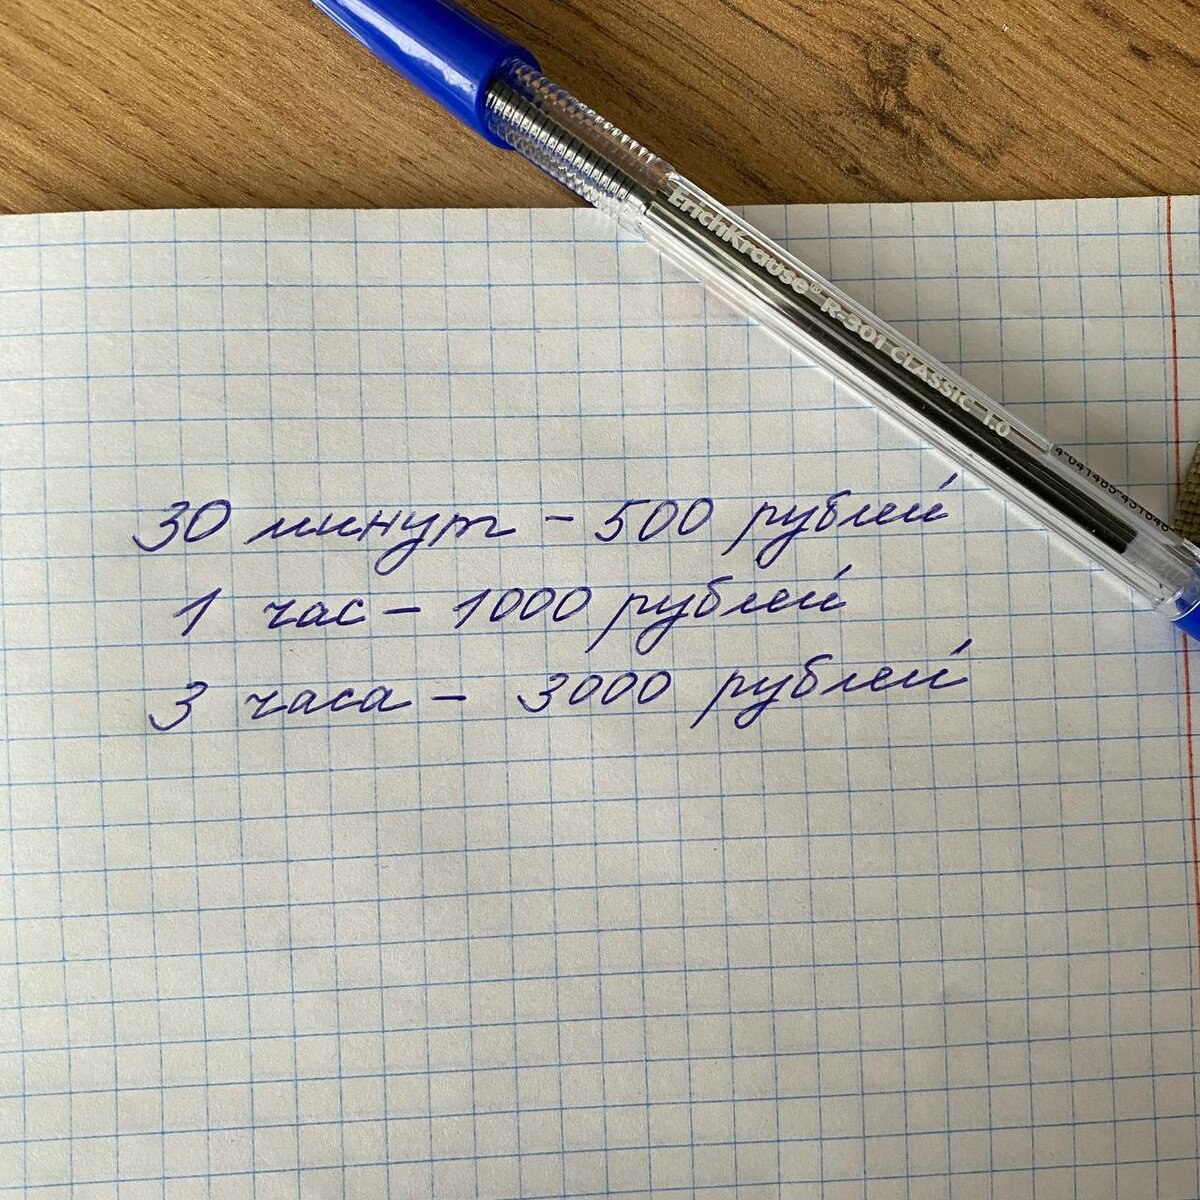 ErichKrause® R-301 CLASSIC 1.0
30 минут - 500 рублей
1 час - 1000 рублей
3 часа - 3000 рублей